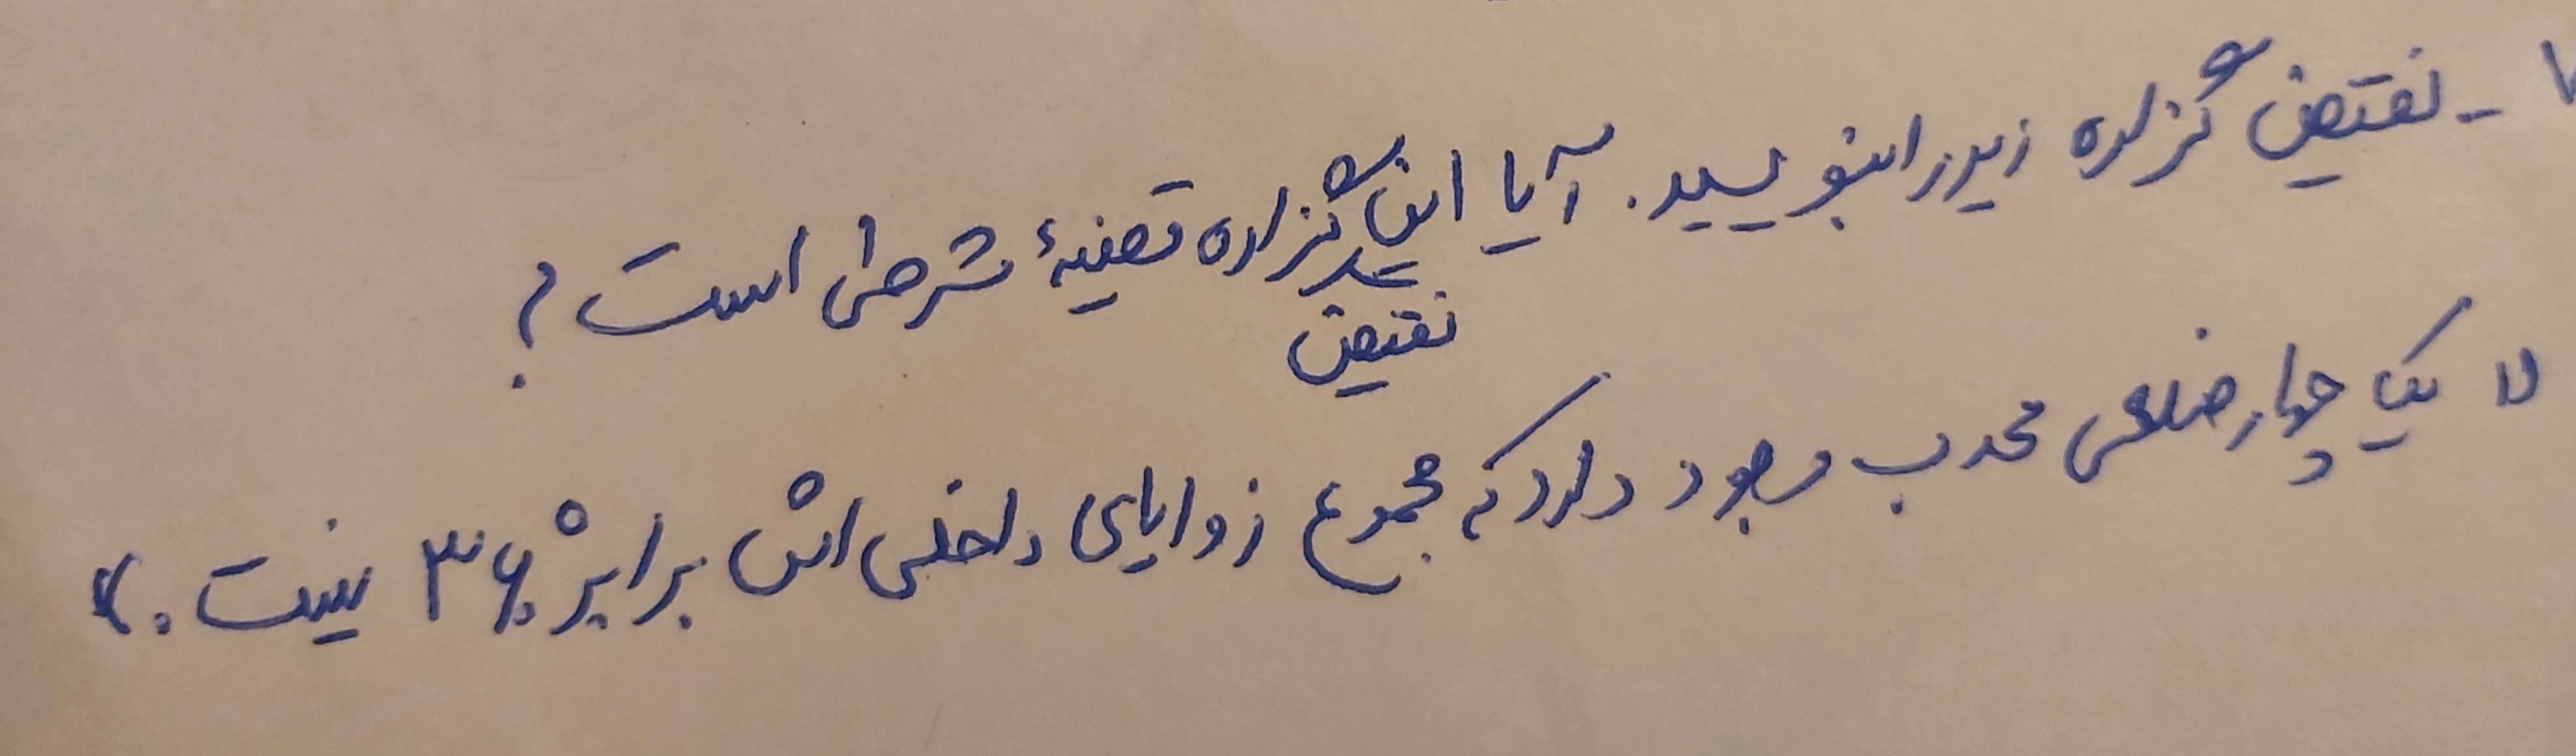 ۷- نقیض گزاره زیر را بنویسید. آیا این گزاره قضیهٔ شرطی است؟
نقیض
« یک چهارضلعی محدب وجود دارد که مجموع زوایای داخلی اش برابر ۳۶۰° نیست. »